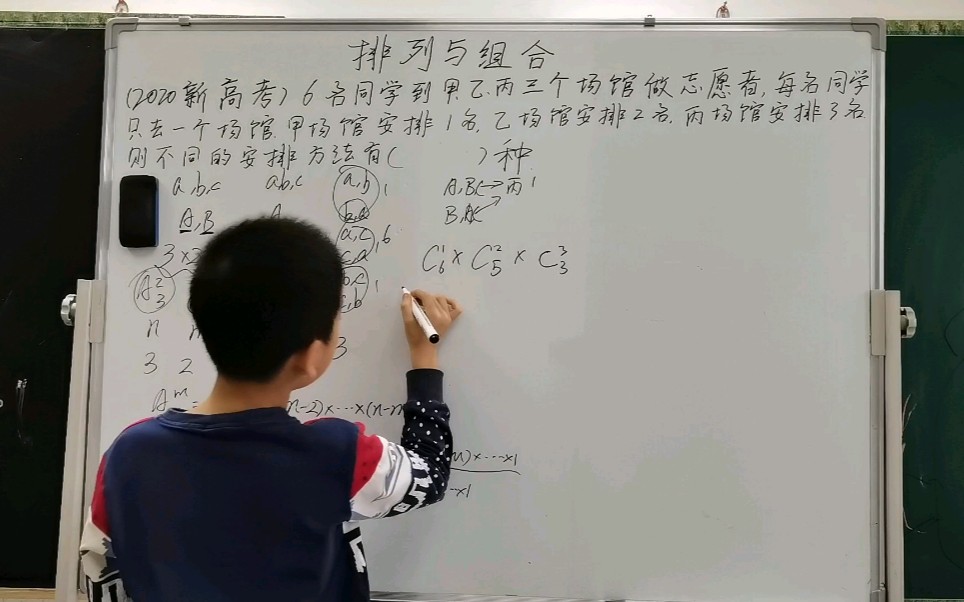 排列与组合
(2020新高考) 6名同学到甲.乙.丙三个场馆做志愿者,每名同学
只去一个场馆.甲场馆安排1名,乙场馆安排2名.丙场馆安排3名
则不同的安排方法有(   )种.
a,b,c   ab,c   a,b 1   A,B C→丙 1
A,B   A   b,a   B,A C
3×2   a,c 6   C₆¹ × C₅² × C₃³
c,a 1
A₃²   b,c 1
c,b
n
3 2   3
Aᵐ   n-2)×⋯×(n-m
)×⋯×1
×1